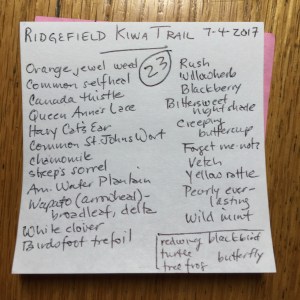 RIDGEFIELD KIWA TRAIL 7-4-2017
Orange jewel weed
Common selfheal
Canada thistle
Queen Anne's Lace
Hairy Cat's Ear
Common St. Johns Wort
chamomile
sheep's sorrel
Am. Water Plantain
Wapato (arrowhead)-
broadleaf, delta
White clover
Birdsfoot trefoil
23
Rush
Willowherb
Blackberry
Bittersweet
nightshade
Creeping
buttercup
Forget me nots
Vetch
Yellow rattle
Pearly ever-
lasting
Wild mint
redwing blackbird
turtle butterfly
tree frog